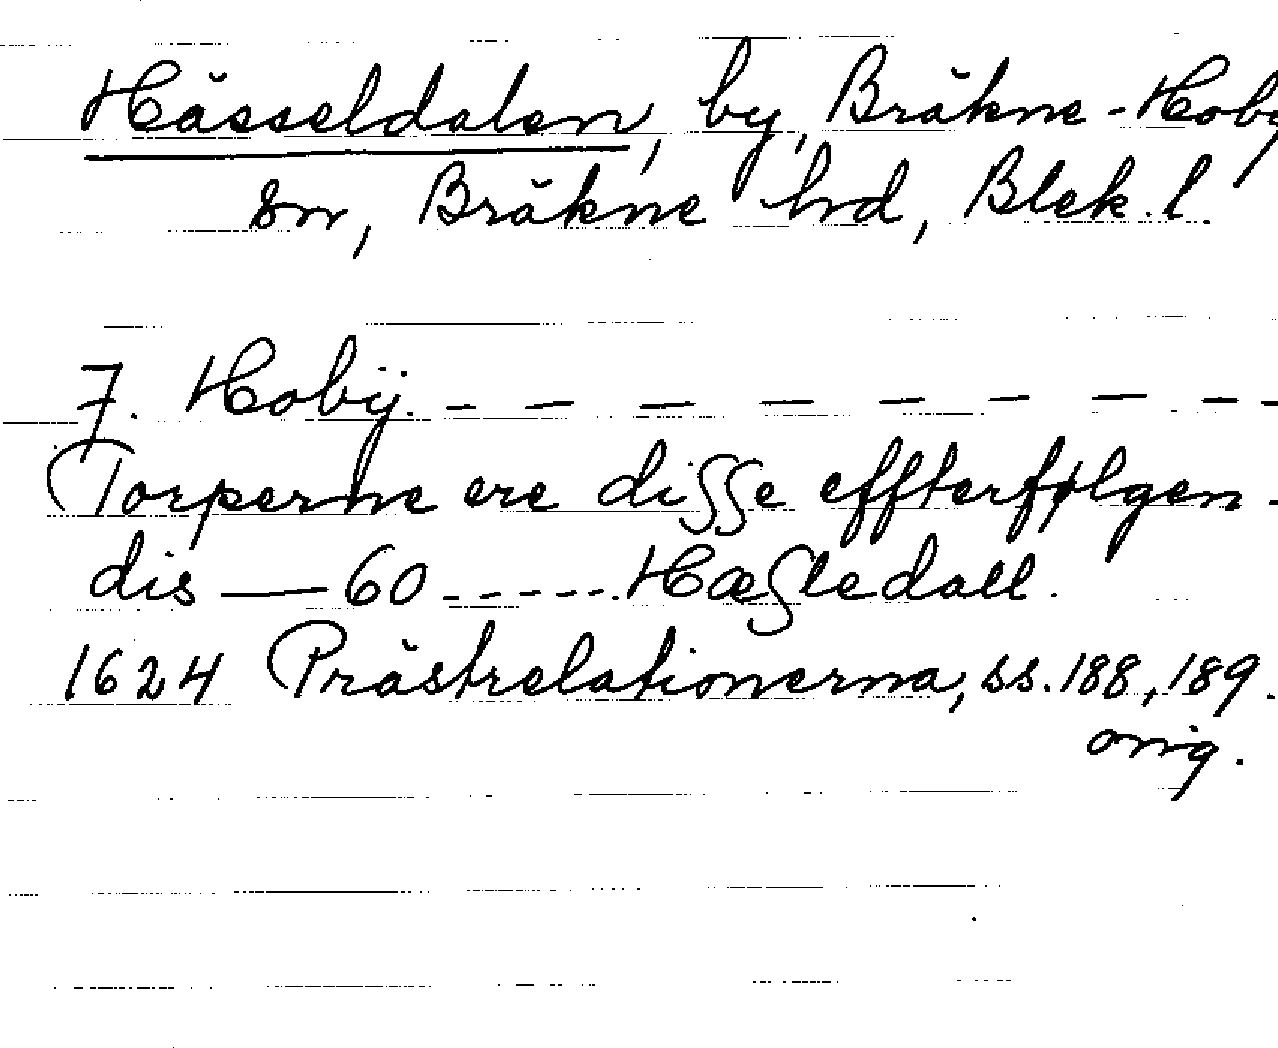 Hässeldalen, by, Bräkne-Hoby
sn, Bräkne hrd, Blek. l.
7. Hobÿ. – – – – – – – –
Torperne ere diſſe effterfølgen-
dis — 60 - - - - - . Hæſledall.
1624 Prästrelationerna, ss. 188, 189.
orig.